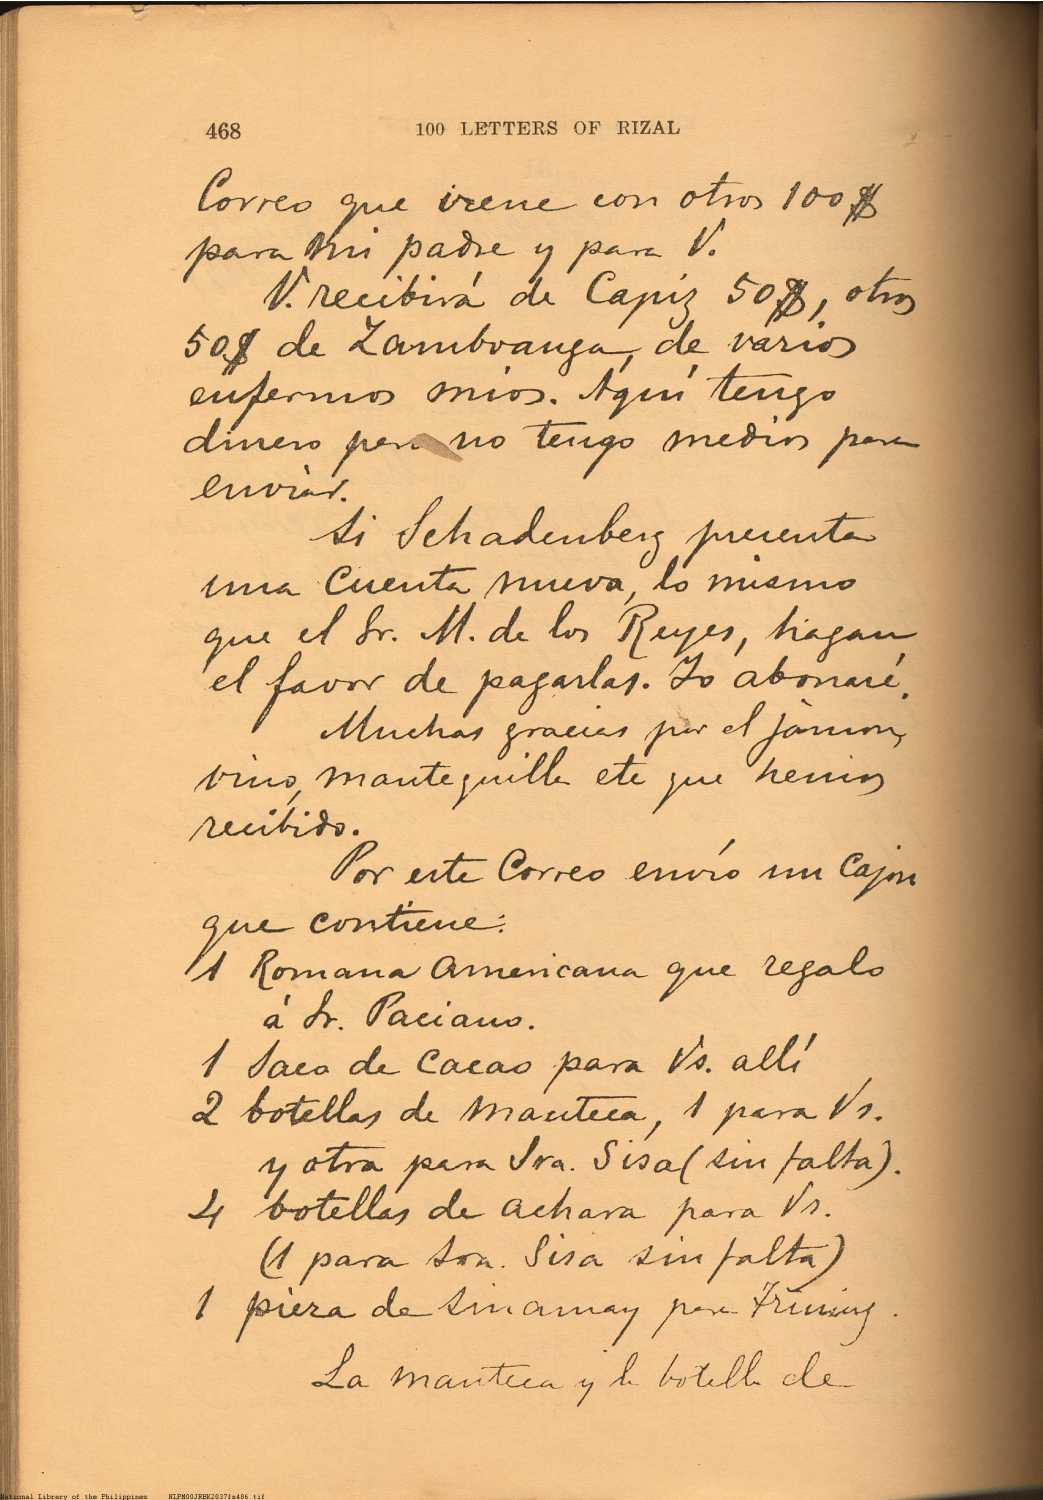 468 100 LETTERS OF RIZAL
Correo que viene con otros 100$
para mi padre y para V.
V. recibirá de Capiz 50$, otros
50$ de Zamboanga, de varios
enfermos mios. Aquí tengo
dinero pero no tengo medios para
enviar.
Si Schadenberg presenta
una cuenta nueva, lo mismo
que el Sr. M. de los Reyes, hagan
el favor de pagarlas. Yo abonaré.
Muchas gracias por el jamon,
vino, mantequilla etc que hemos
recibido.
Por este Correo envío un Cajon
que contiene:
1 Romana Americana que regalo
á Sr. Paciano.
1 Saco de Cacao para Vs. allí
2 botellas de manteca, 1 para Vs.
y otra para Sra. Sisa (sin falta).
4 botellas de achara para Vs.
(1 para Sra. Sisa sin falta)
1 pieza de sinamay para Trining.
La manteca y la botella de
National Library of the Philippines NLPM00JRBK2037fs486.tif